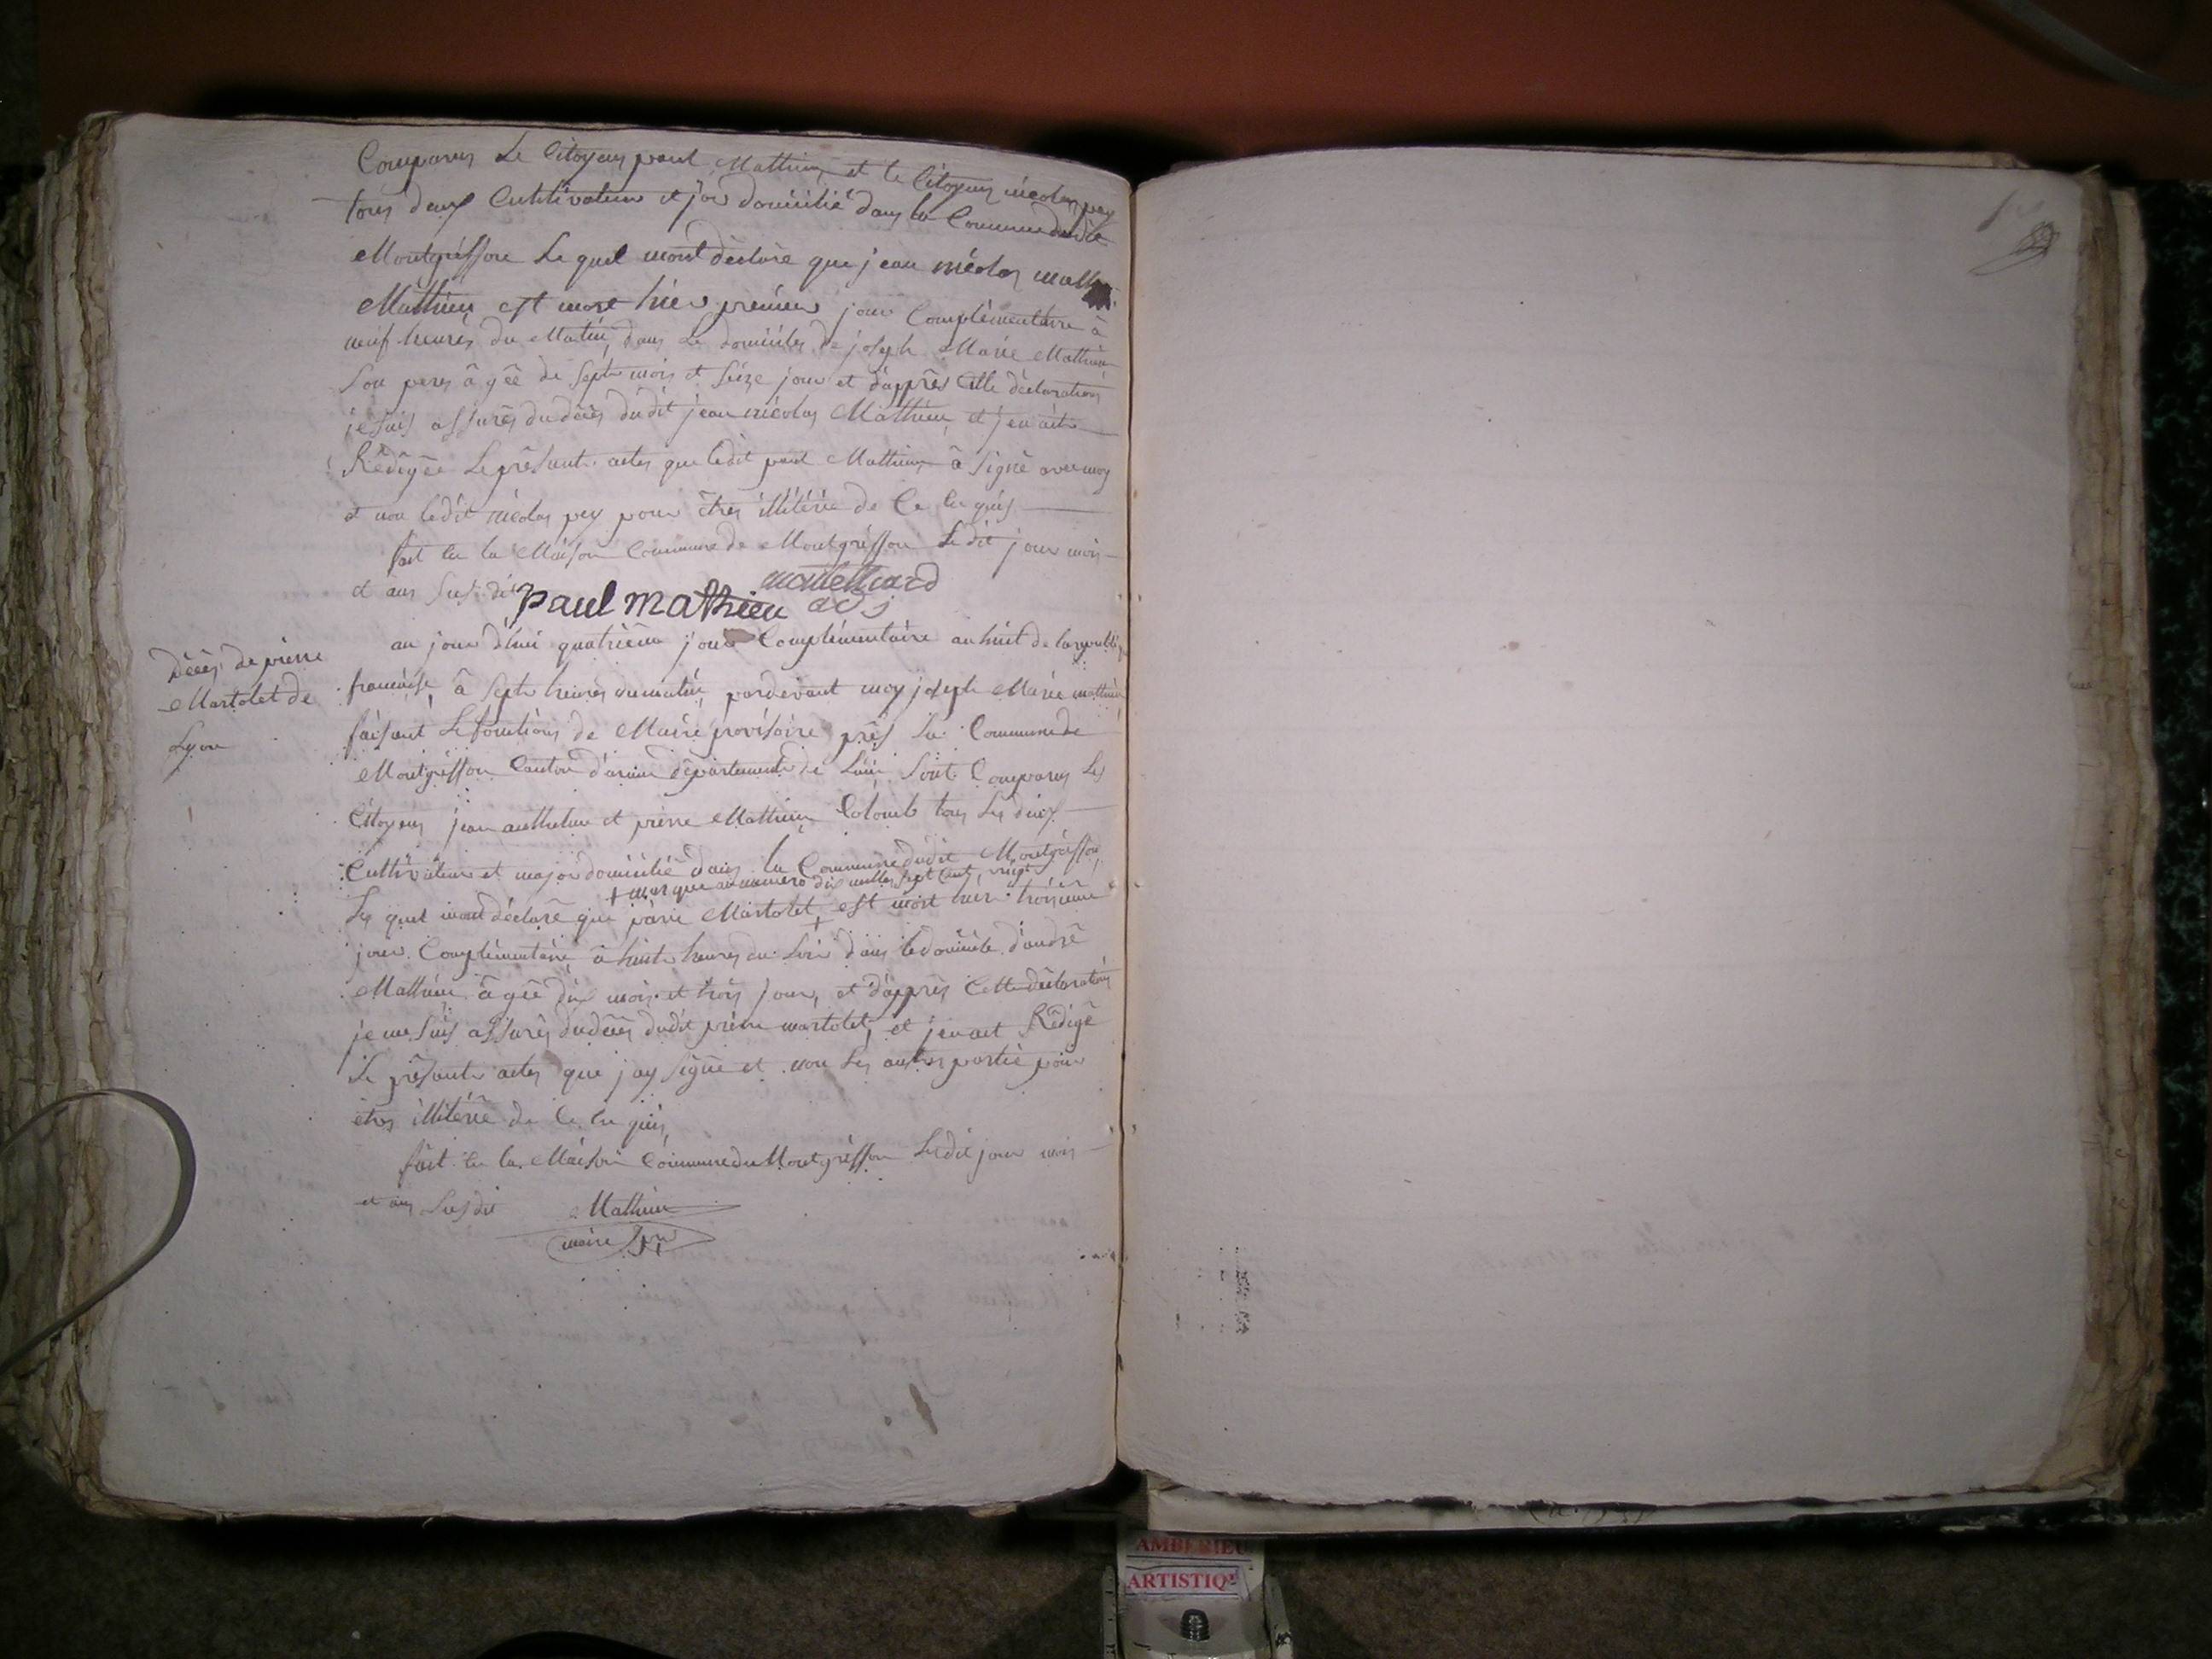 Comparus Le Citoyens paul Mathieu et le Citoyens nicolas pey
tous deux Cultivateur et jor domicilié dans la Commune dudit
Montgriffon Le quel mont dèclarè que jean nicolas
Mathieu est mort hier premier jour Complèmentaire à
neuf heures du Matin, dans Le domiciles de joseph Marie Mathieu
Son peres âgêê de Septe mois et Seize jour et dapprès Cette dèclarations
je suis assurès du dècès dudit jean nicolas Mathieu, et jen aite
Rêdigêe Le prèsente actes que ledit paul Mathieu â Signè avec moy
et non ledit nicolas pey pour êtres illitèrie de Ce En quis
fait en la Maison Commune de Montgriffon Ledit jour mois
et ans Sus dit paul mathieu montelliard
adj
au jour d'hui quatrième jour Complèmentaire an huit de la republiq
francaise, à Septe heures du matin, pardevant moy joseph Marie mathieu
faisant Le fonctions de Maire provisoire près La Commune de
Montgriffon Canton d'aranc dèpartement de Lain Sont Comparus Les
Citoyens jean anthelme et pierre Mathieu Colomb tous Les deux
Cultivateur et major domicilié dans la Commune dudit Montgriffon
+ marque au numero dix milles Sept Cent, vingt
Les quel mont dèclarè que pierre Martolet + est mort hier troisième
jour Complèmentaire à huite heures du Soir dans le domicile d'andrè
Mathieu âgêe dix mois et trois jour, et dapprès Cette dèclaration
je me Suis assurès du dècès dudit pierre martolet, et jen ait Rêdigè
Le prèsente actes que jay Signe et non Les autres partie pour
êtres illitèrie de Ce En quis
fait en la Maison Commune du Montgriffon Ledit jour mois
et ans Susdit Mathieu
maire
Dècès de pierre
Martolet de
Lyon
AMBERIEU
ARTISTIQ